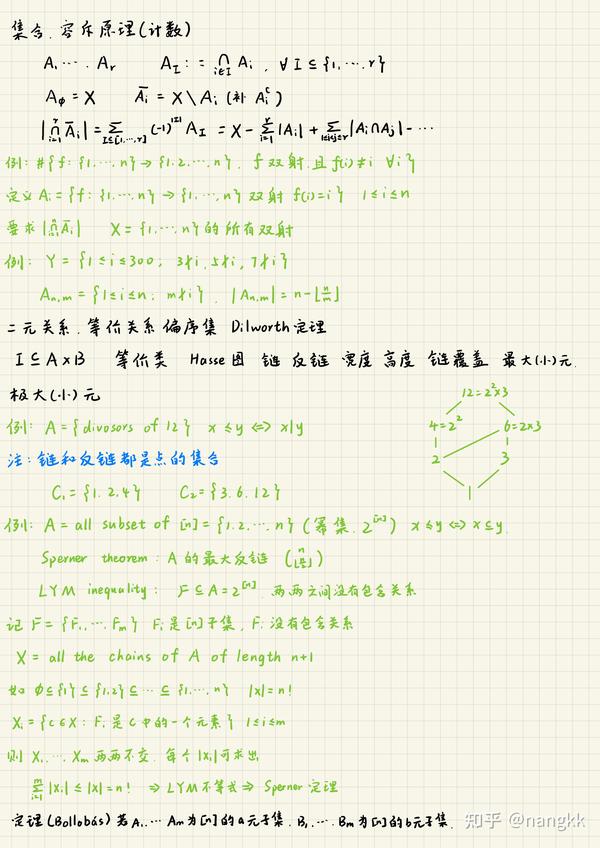 集合、容斥原理(计数)
A₁, ⋯, Aᵣ  A_I := ⋂_{i∈I} Aᵢ, ∀ I ⊆ {1, ⋯, r}
A_∅ = X  Āᵢ = X \ Aᵢ (补 Aᵢᶜ)
|⋂_{i=1}^{r} Āᵢ| = Σ_{I⊆{1,⋯,r}} (-1)^{|I|} A_I = X - Σ_{i=1}^{r} |Aᵢ| + Σ_{1≤i<j≤r} |Aᵢ∩Aⱼ| - ⋯
例: #{f: {1, ⋯, n} → {1, 2, ⋯, n}, f 双射, 且 f(i) ≠ i ∀i}
定义 Aᵢ = {f: {1, ⋯, n} → {1, ⋯, n} 双射 f(i)=i} 1≤i≤n
要求 |⋂_{i=1}^{n} Āᵢ|  X = {1, ⋯, n} 的所有双射
例: Y = {1≤i≤300, 3∤i, 5∤i, 7∤i}
A_{n,m} = {1≤i≤n, m∤i}, |A_{n,m}| = n-⌊n/m⌋
二元关系、等价关系 偏序集 Dilworth定理
I ⊆ A×B 等价类 Hasse图 链 反链 宽度 高度 链覆盖 最大(小)元,
极大(小)元
12=2²×3
例: A = {divosors of 12} x≤y ⇔ x|y
4=2² 6=2×3
注: 链和反链都是点的集合
2 3
C₁ = {1, 2, 4} C₂ = {3, 6, 12}
1
例: A = all subset of [n] = {1, 2, ⋯, n} (幂集, 2^{[n]}) x≤y ⇔ x⊆y,
Sperner theorem: A 的最大反链 (n ⌊n/2⌋)
LYM inequality: F ⊆ A = 2^{[n]}, 两两之间没有包含关系
记 F = {F₁, ⋯, Fₘ} Fᵢ 是[n]子集, Fᵢ 没有包含关系
X = all the chains of A of length n+1
如 ∅ ⊆ {1} ⊆ {1,2} ⊆ ⋯ ⊆ {1, ⋯, n} |X| = n!
Xᵢ = {C∈X: Fᵢ 是 C 中的一个元素} 1≤i≤m
则 X₁, ⋯, Xₘ 两两不交, 每个 |Xᵢ| 可求出
Σ_{i=1}^{m} |Xᵢ| ≤ |X| = n! ⇒ LYM不等式 ⇒ Sperner 定理
定理(Bollobás) 若 A₁, ⋯ Aₘ 为[n]的a元子集, B₁, ⋯, Bₘ 为[n]的b元子集,
知乎 @nangkk